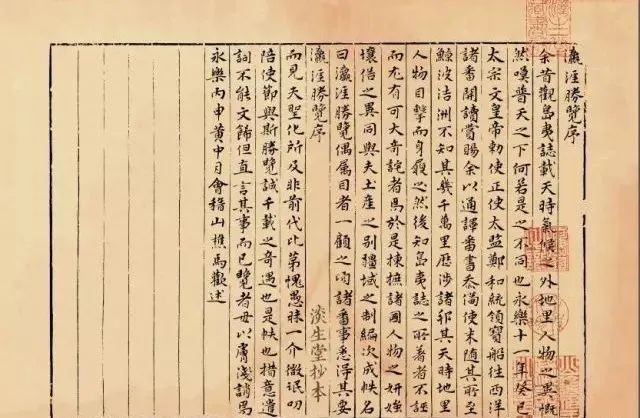 瀛涯勝覽序
余昔觀島夷誌載天時氣候之外地里人物之異慨
然嘆普天之下何若是之不同也永樂十一年癸巳
太宗文皇帝勅使正使太監鄭和統領寶船往西洋
諸番開讀賞賜余以通譯番書忝備使末随其所至
鯨波浩渺不知其幾千萬里歷涉諸邦其天時地里
人物目擊而身履之然後知島夷誌之所著者不誣
而尤有可大奇詫者焉於是採摭諸國人物之妍媸
壤俗之異同與夫土產之别疆域之制編次成帙名
曰瀛涯勝覽俾屬目者一顧之頃諸番事悉得其要
淡生堂抄本
而見天聖化所及非前代比第愧愚昧一介微氓叨
陪使節與斯勝覽誠千載之奇遇也是帙也措意遣
詞不能文飾但直言其事而已覽者毋以膚淺誚焉
永樂丙申黄中月會稽山樵馬歡述